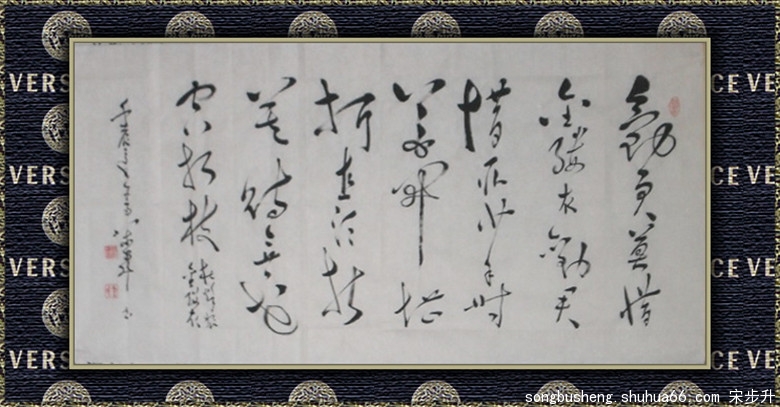 勸君莫惜
金縷衣勸君
惜取少年時
花開堪
折直须折
莫待無花
空折枝
杜秋娘
金縷衣
壬辰 步升书
VERS
CE VE
VERS
CE VE
VERS
CE VE
VERS
CE VE
songbusheng.shuhua66.com 宋步升